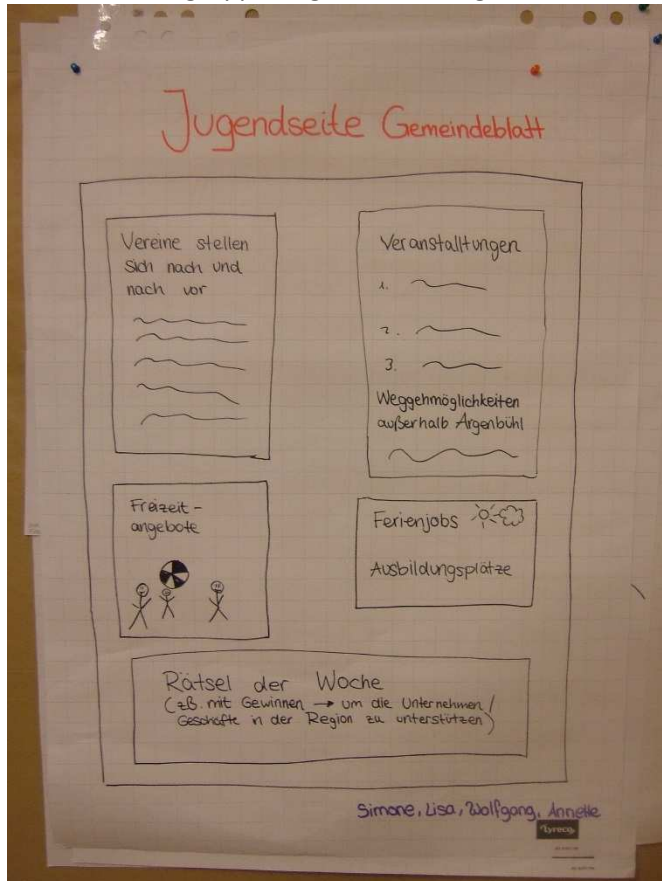 Jugendseite Gemeindeblatt
Vereine stellen
sich nach und
nach vor
Veranstalltungen
1.
2.
3.
Weggehmöglichkeiten
außerhalb Argenbühl
Freizeit-
angebote
Ferienjobs
Ausbildungsplätze
Rätsel der Woche
(zB. mit Gewinnen → um die Unternehmen /
Geschäfte in der Region zu unterstützen)
Simone, Lisa, Wolfgang, Annette